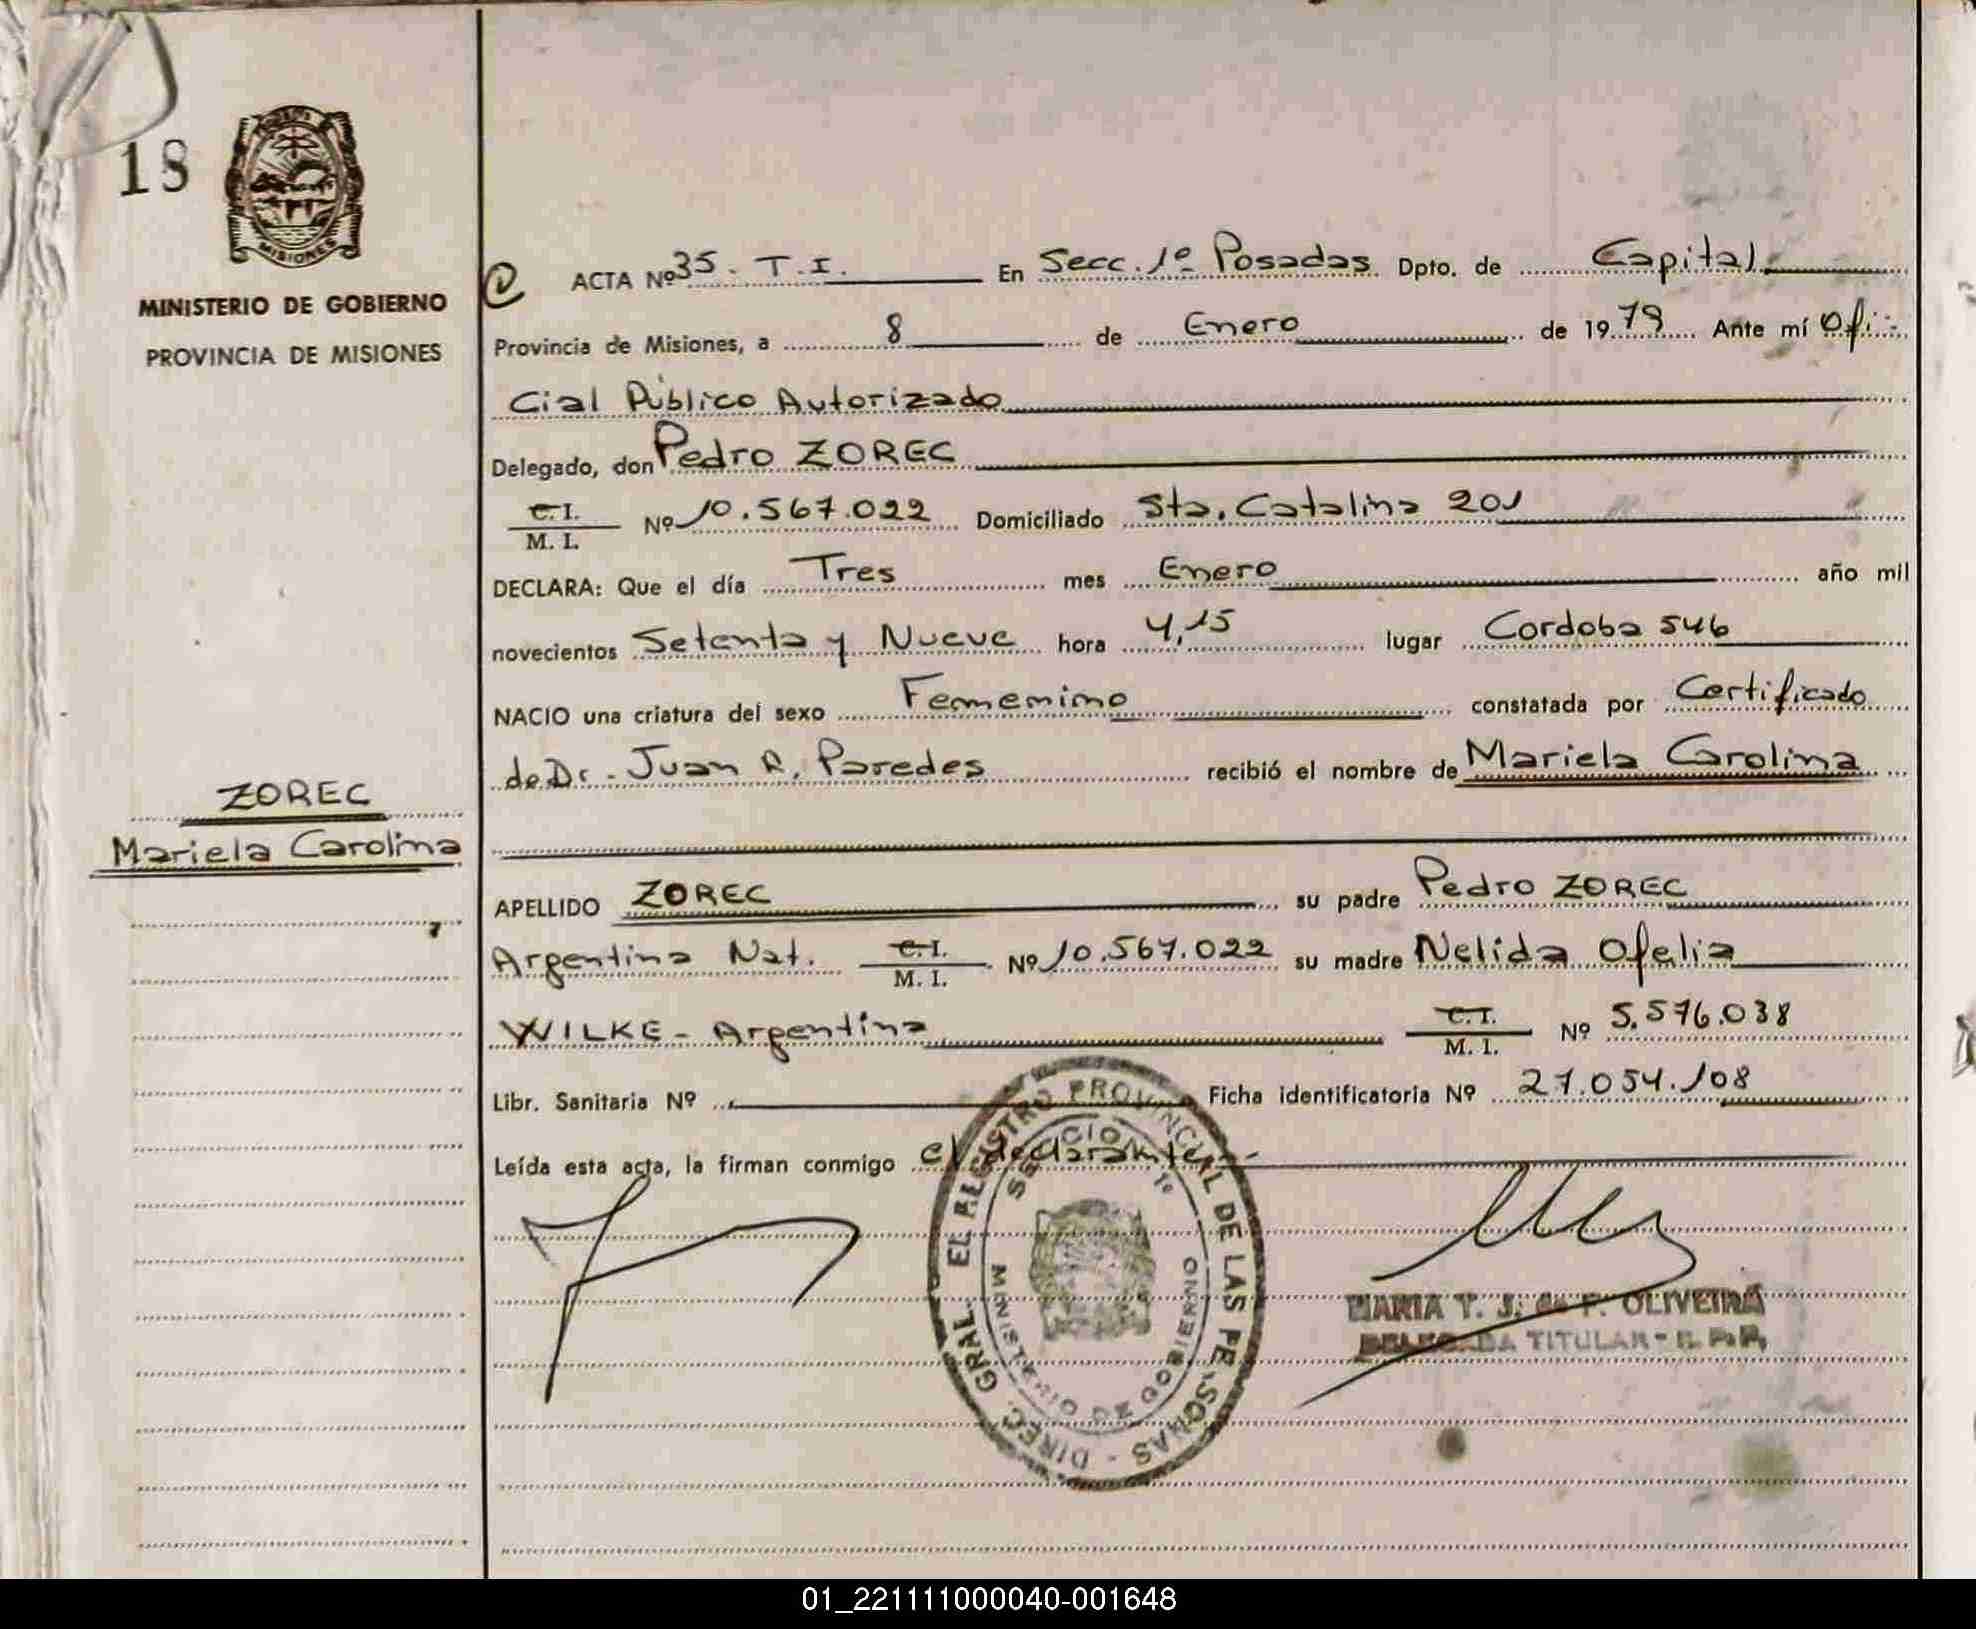 18
MISIONES
MINISTERIO DE GOBIERNO
PROVINCIA DE MISIONES
ZOREC
Mariela Carolina
ACTA Nº 35. T.I. En Secc. 1º Posadas Dpto. de Capital
Provincia de Misiones, a 8 de Enero de 1979 Ante mí Ofi-
cial Público Autorizado
Delegado, don Pedro ZOREC
C.I.
M. I. Nº 10.567.022 Domiciliado Sta. Catalina 201
DECLARA: Que el día Tres mes Enero año mil
novecientos Setenta y Nueve hora 4,15 lugar Cordoba 546
NACIO una criatura del sexo Femenino constatada por Certificado
de Dr. Juan R. Paredes recibió el nombre de Mariela Carolina
APELLIDO ZOREC su padre Pedro ZOREC
Argentina Nat. C.I.
M. I. Nº 10.567.022 su madre Nelida Ofelia
WILKE - Argentina C.I.
M. I. Nº 5.576.038
Libr. Sanitaria Nº Ficha identificatoria Nº 27.054.108
Leída esta acta, la firman conmigo el declarante.-
DIREC. GRAL. EL REGISTRO PROVINCIAL DE LAS PERSONAS
SECCION 1º
MINISTERIO DE GOBIERNO
MARIA T. J. de P. OLIVEIRA
DELEGADA TITULAR - R. P. P.
01_221111000040-001648